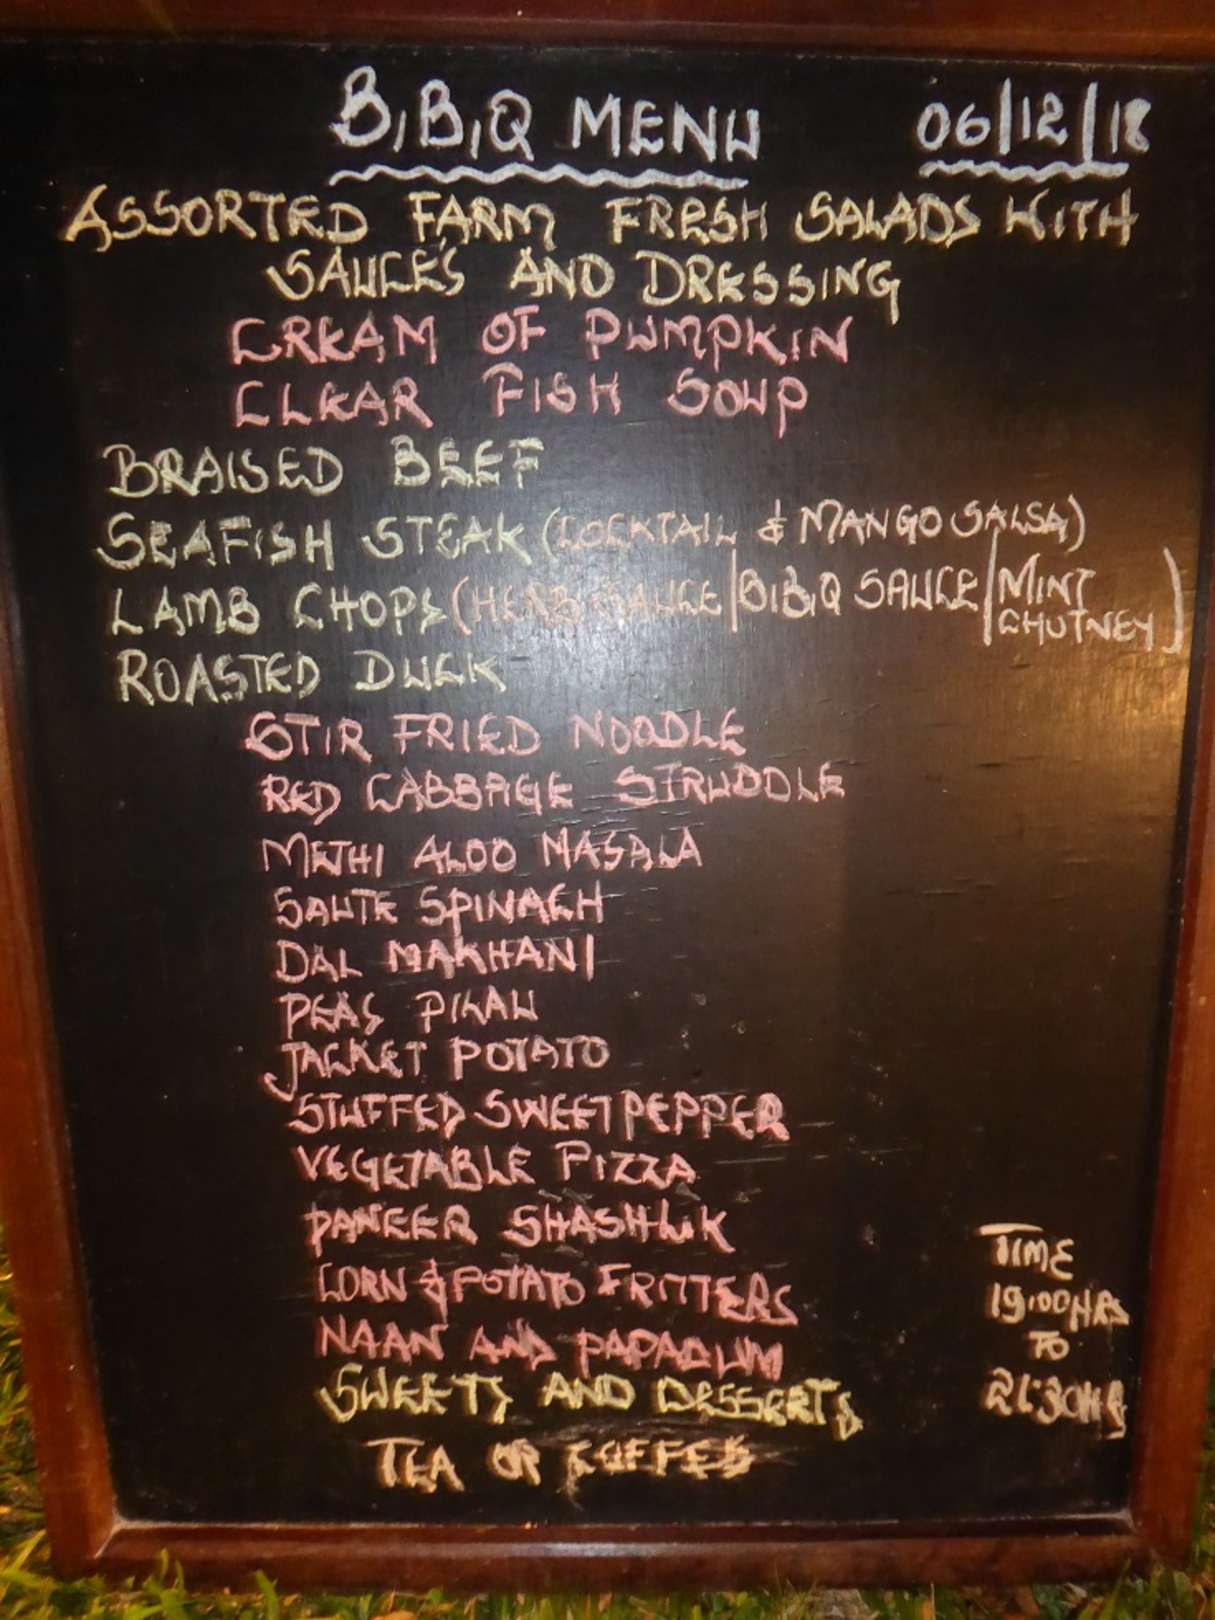 B.B.Q MENU 06/12/18
ASSORTED FARM FRESH SALADS WITH
SAUCES AND DRESSING
CREAM OF PUMPKIN
CLEAR FISH SOUP
BRAISED BEEF
SEAFISH STEAK (COCKTAIL & MANGO SALSA)
LAMB CHOPS (HERB SAUCE/B.B.Q SAUCE/MINT CHUTNEY)
ROASTED DUCK
STIR FRIED NOODLE
RED CABBAGE STRUDDLE
METHI ALOO MASALA
SAUTE SPINACH
DAL MAKHANI
PEAS PILAU
JACKET POTATO
STUFFED SWEET PEPPER
VEGETABLE PIZZA
PANEER SHASHLIK
CORN & POTATO FRITTERS
NAAN AND PAPADUM
SWEETS AND DESSERTS
TEA OR COFFEE
TIME
19:00HRS
TO
21:30HRS